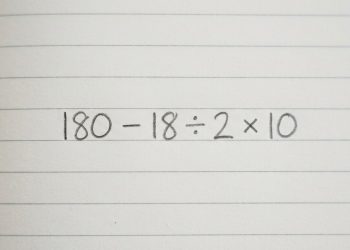 180 − 18 ÷ 2 × 10